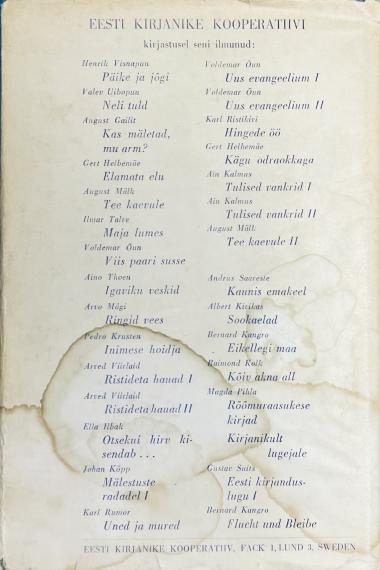 EESTI KIRJANIKE KOOPERATIIVI
kirjastusel seni ilmunud:
Henrik Visnapuu
Päike ja jõgi
Valev Uibopuu
Neli tuld
August Gailit
Kas mäletad,
mu arm?
Gert Helbemäe
Elamata elu
August Mälk
Tee kaevule
Ilmar Talve
Maja lumes
Voldemar Õun
Viis paari susse
Aino Thoen
Igaviku veskid
Arvo Mägi
Ringid vees
Pedro Krusten
Inimese hoidja
Arved Viirlaid
Ristideta hauad I
Arved Viirlaid
Ristideta hauad II
Ella Ilbak
Otsekui hirv ki-
sendab . . .
Johan Kõpp
Mälestuste
radadel I
Karl Rumor
Uned ja mured
Voldemar Õun
Uus evangeelium I
Voldemar Õun
Uus evangeelium II
Karl Ristikivi
Hingede öö
Gert Helbemäe
Kägu odraokkaga
Ain Kalmus
Tulised vankrid I
Ain Kalmus
Tulised vankrid II
August Mälk
Tee kaevule II
Andrus Saareste
Kaunis emakeel
Albert Kivikas
Sookaelad
Bernard Kangro
Eikellegi maa
Raimond Kolk
Kõiv akna all
Magda Pihla
Rõõmuraasukese
kirjad
Kirjanikult
lugejale
Gustav Suits
Eesti kirjandus-
lugu I
Bernard Kangro
Flucht und Bleibe
EESTI KIRJANIKE KOOPERATIIV, FACK 1, LUND 3, SWEDEN